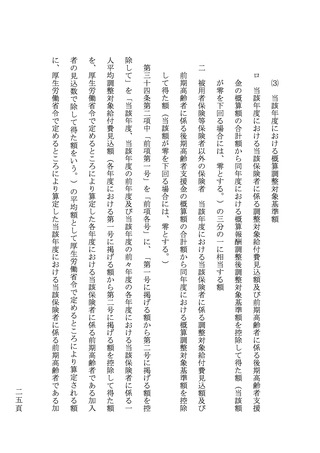 ③　当該年度における概算調整対象基準額
ロ　当該年度における当該保険者に係る調整対象給付費見込額及び前期高齢者に係る後期高齢者支援
金の概算額の合計額から同年度における概算報酬調整後調整対象基準額を控除して得た額（当該額
が零を下回る場合には、零とする。）の三分の一に相当する額
二　被用者保険等保険者以外の保険者　当該年度における当該保険者に係る調整対象給付費見込額及び
前期高齢者に係る後期高齢者支援金の概算額の合計額から同年度における概算調整対象基準額を控除
して得た額（当該額が零を下回る場合には、零とする。）
第三十四条第二項中「前項第一号」を「前項各号」に、「第一号に掲げる額から第二号に掲げる額を控
除して」を「当該年度、当該年度の前年度及び当該年度の前々年度の各年度における当該保険者に係る一
人平均調整対象給付費見込額（各年度における第一号に掲げる額から第二号に掲げる額を控除して得た額
を、厚生労働省令で定めるところにより算定した各年度における当該保険者に係る前期高齢者である加入
者の見込数で除して得た額をいう。）の平均額として厚生労働省令で定めるところにより算定される額
に、厚生労働省令で定めるところにより算定した当該年度における当該保険者に係る前期高齢者である加
二五頁